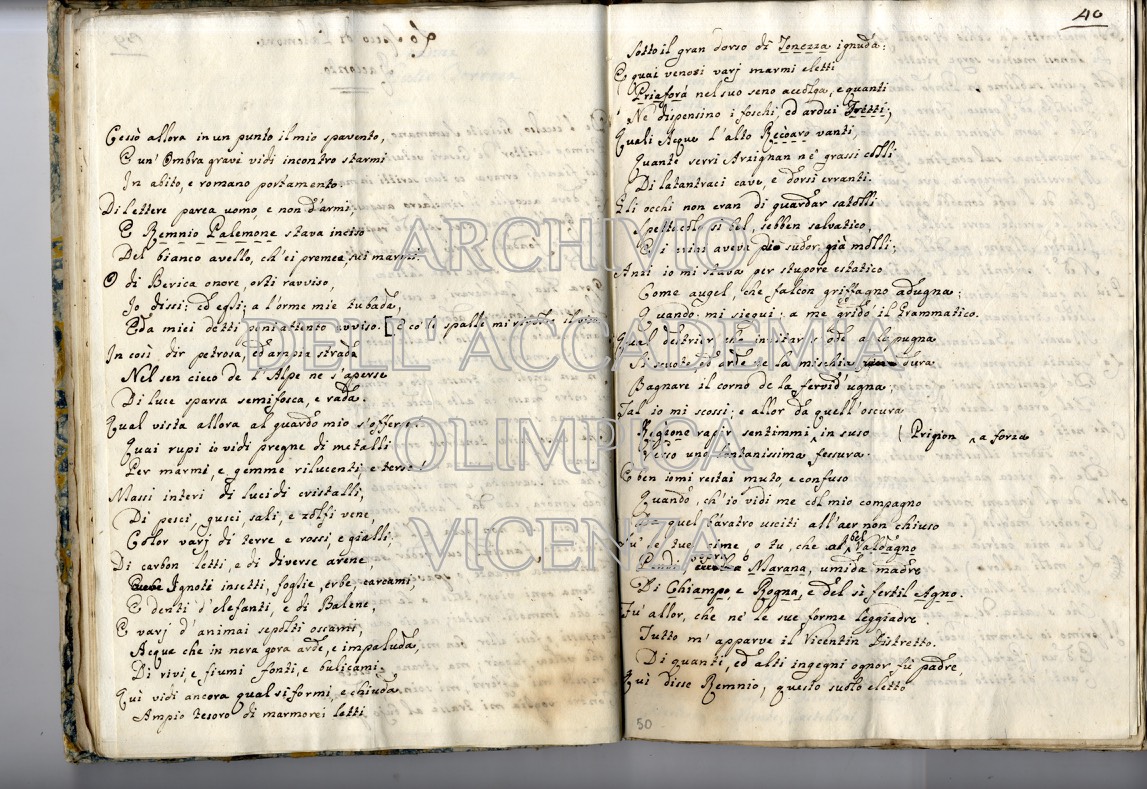 Cessò allora in un punto il mio spavento,
E un' Ombra gravi vidi incontro starmi
In abito, e romano portamento.
Di lettere parea uomo, e non d'armi,
E Remnio Palemone stava inciso
Del bianco avello, ch' ei premea, sui marmi.
O di Berica onore, orti ravviso,
Io dissi: ed egli; a l'orme mie tu bada,
E da miei detti pendi attento avviso. [E co' spalle mi il viso
In così dir petrosa, ed ampia strada
Nel sen cieco de l'Alpe ne s'aperse
Di luce sparsa semifosca, e rada.
Qual vista allora al guardo mio s'offerse
Quai rupi io vidi pregne di metalli
Per marmi, e gemme rilucenti, e terse!
Massi interi di lucidi cristalli,
Di pesci, gusci, sali, e zolfi vene,
Color varj di terre e rossi, e gialli;
Di carbon letti, e di diverse arene,
Ignoti insetti, foglie, erbe, carcami,
E denti d'elefanti, e di Balene,
E varj d'animai sepolti ossami,
Acque che in nera gora arde, e impaluda,
Di rivi, e fiumi fonti, e bulicami.
Quì vidi ancora qual si formi, e chiuda
Ampio tesoro di marmorei letti
40
Sotto il gran dorso di Tonezza ignuda:
E quai venosi varj marmi eletti
Priaforà nel suo seno accolga, e quanti
Ne dispensino i foschi, ed ardui Tretti;
Quali Acque l'alto Recoaro vanti,
Quante serri Arzignan ne' grassi colli
Di latantraci cave, e dorsi erranti.
Gli occhi non eran di guardar satolli
Spettacolo sì bel, sebben salvatico,
E i crini avevi più sudor già molli;
Anzi io mi stava per stupore estatico
Come augel, che falcon griffagno adugna;
Quando: mi siegui: a me gridò il Grammatico.
Qual destrier che invitar s'ode a la pugna
Si scuote ed arde ne la mischia dura
Bagnare il corno de la fervid' ugna;
Tal io mi scossi; e allor da quell' oscura
Region rapir sentimmi in suso ( Prigion ^ a forza
Verso una lontanissima fessura.
E ben io mi restai muto, e confuso
Quando, ch'io vidi me col mio compagno
Da quel baratro usciti all'aer non chiuso
Fu' e, tue cime, o tu, che bel Valdagno
o Marana, umida madre
Di Chiampo, e Rogna, e del sì fertil Agno.
Fu' allor, che ne' le sue forme leggiadre
Tutto m' apparve il Vicentin Distretto.
Di quanti, ed alti ingegni ognor fù padre,
Quì disse Remnio, questo suolo eletto
50
ARCHIVIO
DELL'ACCADEMIA
OLIMPICA
VICENZA